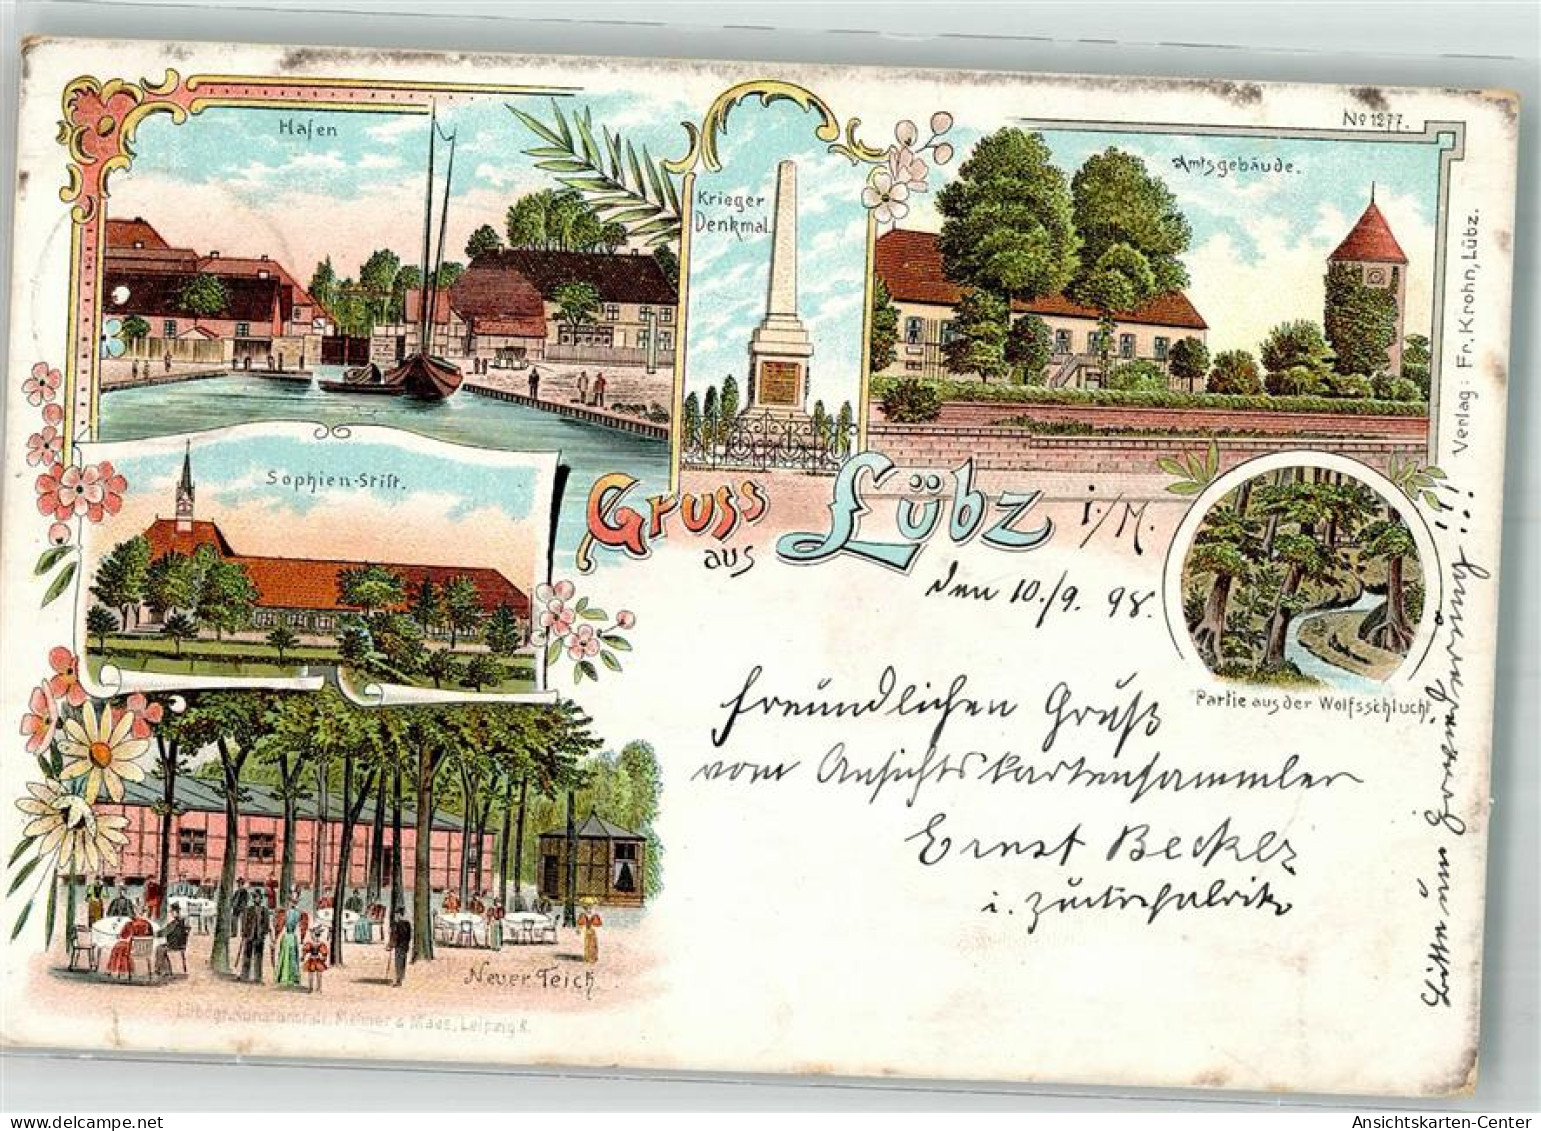 Hafen
Krieger
Denkmal.
No 1277.
Amtsgebäude.
Verlag: Fr. Krohn, Lübz.
Sophien-Stift.
Gruss
aus
Lübz i/M.
den 10./9. 98.
Partie aus der Wolfsschlucht.
Freundlichen Gruß
vom Ansichtskartensammler
Ernst Becker
i. Zuckerfabrik
Bitte um Erwiederung!!
Neuer Teich.
Lithogr. Kunstanstalt, Meiner & Maas, Leipzig R.
Ansichtskarten-Center